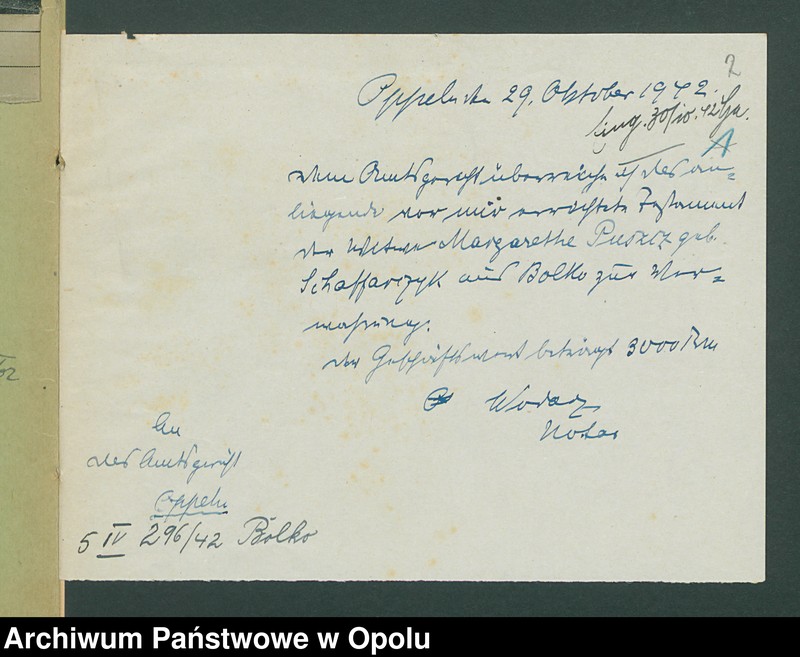 2
Oppeln den 29. Oktober 1942.
Eing. 30/10.42
Dem Amtsgericht überreiche ich das an-
liegende vor mir errichtete Testament
der Witwe Margarethe Puszcz geb.
Schaffarczyk aus Bolko zur Ver-
wahrung.
Der Geschäftswert beträgt 3000 RM
Wodarz
Notar
An
das Amtsgericht
Oppeln
5 IV 296/42 Bolko
Archiwum Państwowe w Opolu